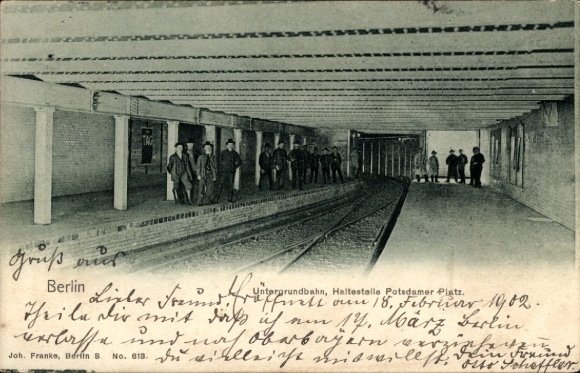 TAG
Gruß aus
Berlin
Untergrundbahn, Haltestelle Potsdamer Platz.
Lieber Freund! Eröffnet am 18. Februar 1902.
Theile Dir mit daß ich am 17. März Berlin
verlasse und nach Oberbayern verziehe
du vielleicht mitwillst. Dein Freund
Otto Scheffler.
Joh. Franke, Berlin S No. 613.